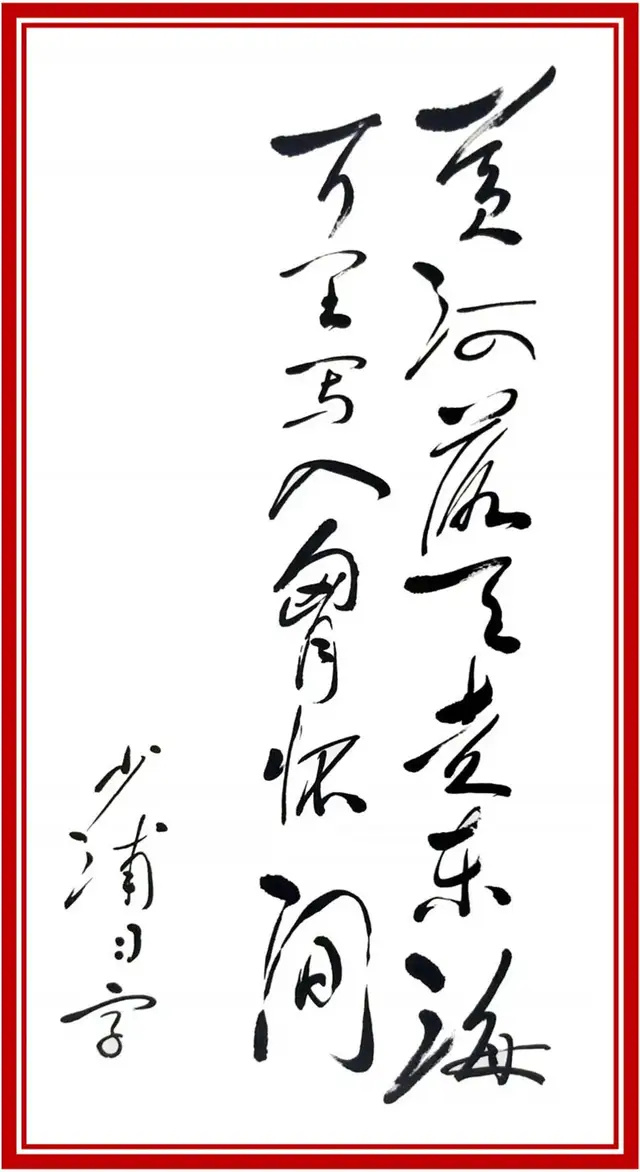 黄河落天走东海
万里写入胷怀间
少浦习字